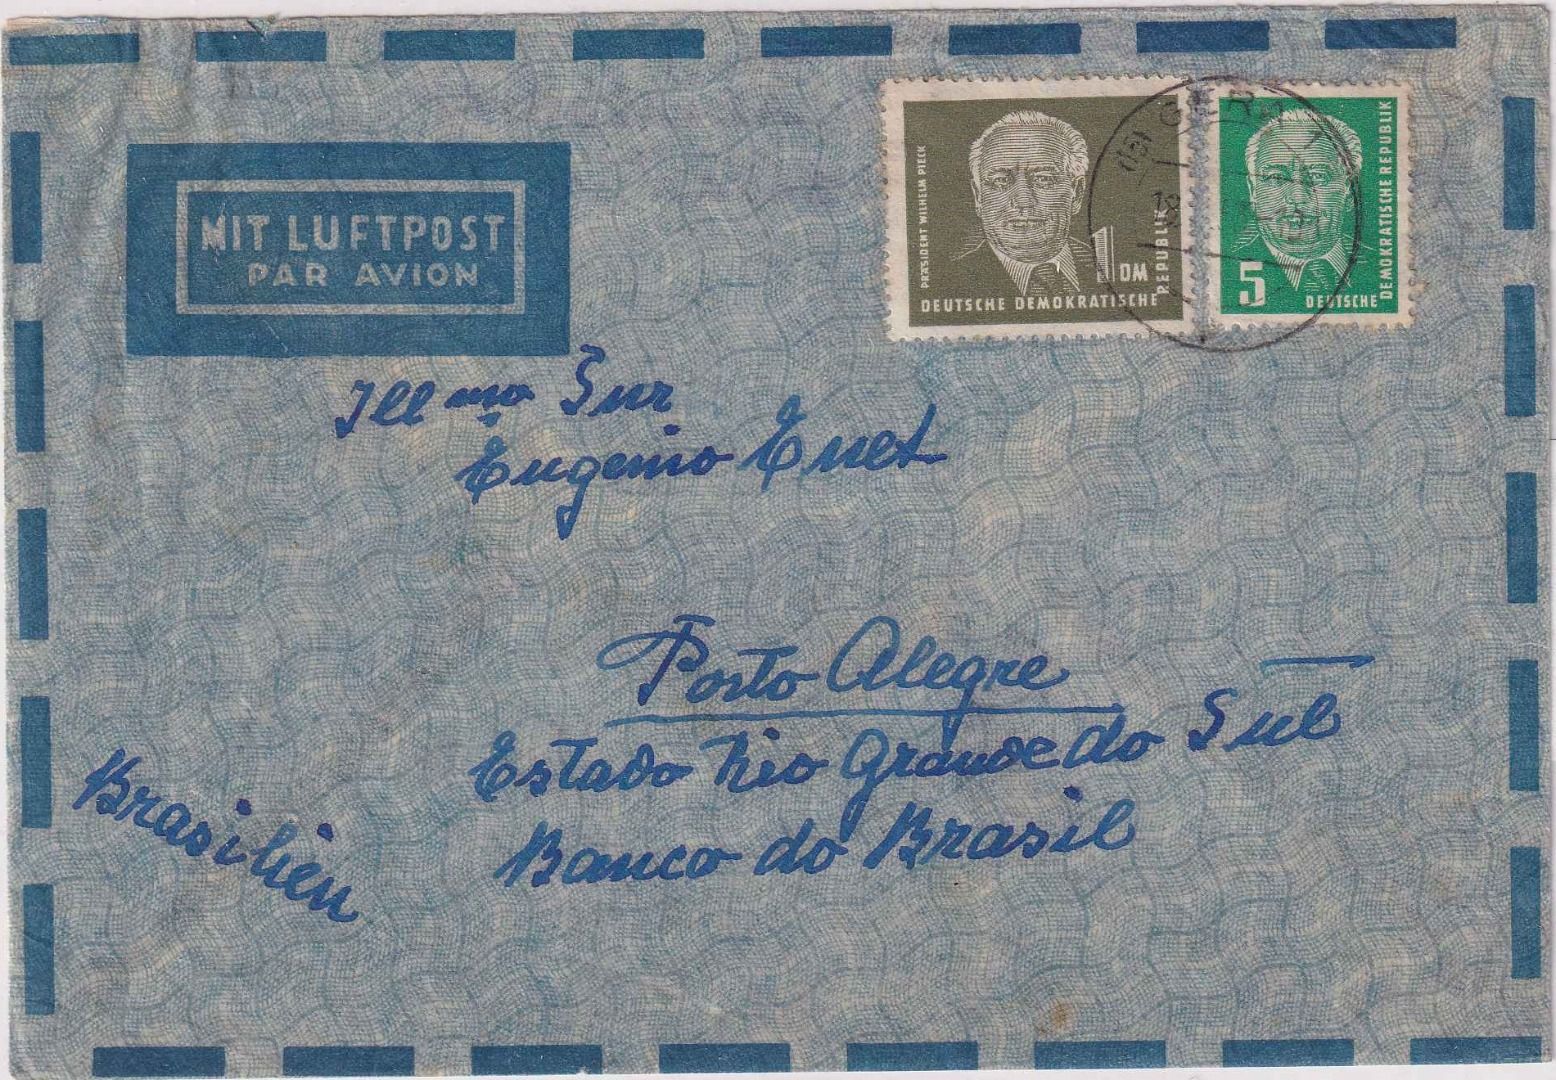 MIT LUFTPOST
PAR AVION
PRÄSIDENT WILHELM PIECK
1 DM
DEUTSCHE DEMOKRATISCHE
REPUBLIK
5
DEUTSCHE
DEMOKRATISCHE REPUBLIK
GERA
18
Illmo Snr
Eugenio Enet
Porto Alegre
Estado Rio Grande do Sul
Banco do Brasil
Brasilien